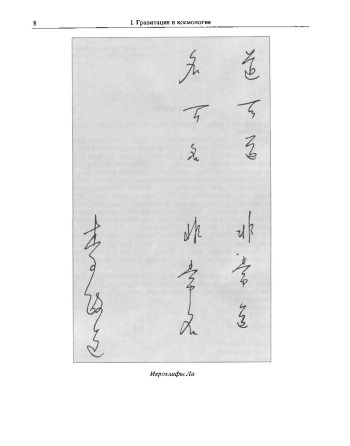 8
I. Гравитация и космология
道可道
非常道
名可名
非常名
李政道
Иероглифы Ли